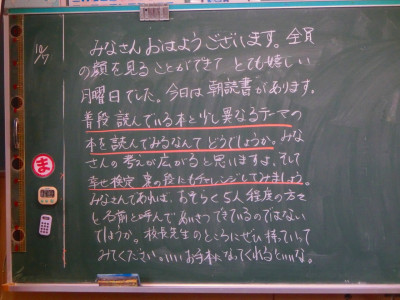 10/7
みなさんおはようございます。全員
の顔を見ることができてとても嬉しい
月曜日でした。今日は朝読書があります。
普段読んでいる本と少し異なるテーマの
本を読んでみるなんてどうでしょうか。みな
さんの考えが広がると思いますよ。そして
幸せ検定 裏の段にもチャレンジしてみましょう。
みなさんであれば、おそらく5人程度の方を
しる前と呼んであいさつできているのではない
でしょうか。校長先生のところにぜひ持っていって
みてください。いいお手本になってくれるといいな。
ま